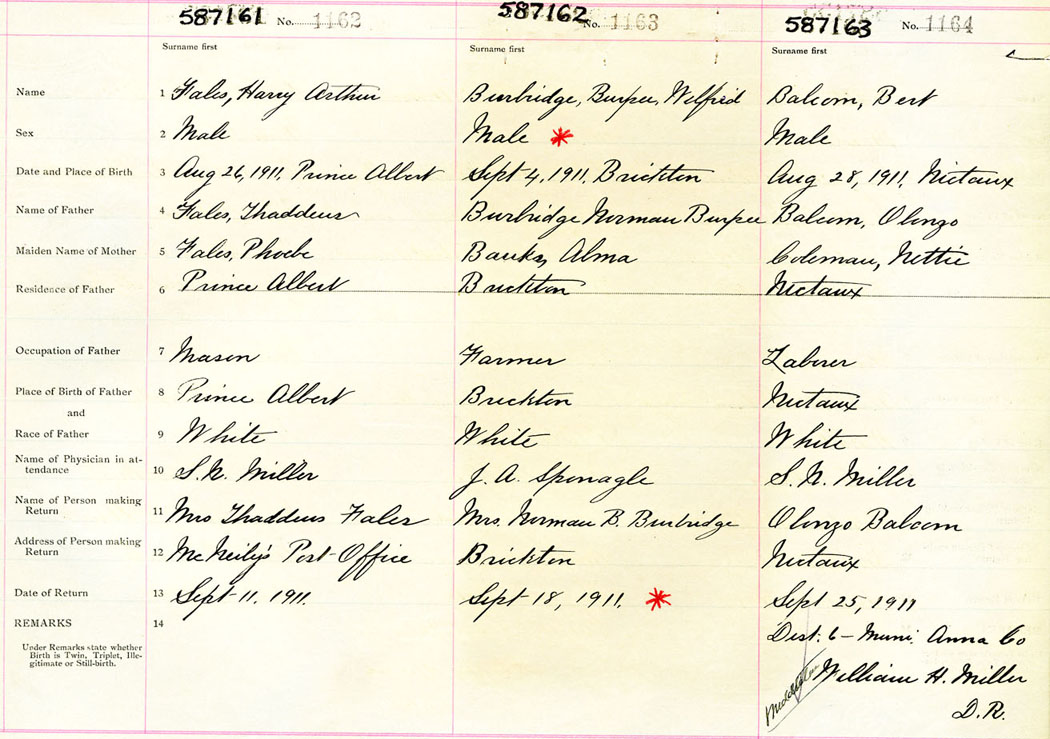 587161 No. 1162 587162 No. 1163 587163 No. 1164
Surname first Surname first Surname first
Name 1 Fales, Harry Arthur Burbridge, Burpee, Welfred Balcom, Bert
Sex 2 Male Male * Male
Date and Place of Birth 3 Aug 26, 1911, Prince Albert Sept 4, 1911, Brickton Aug 28, 1911, Nictaux
Name of Father 4 Fales, Thaddeus Burbridge Norman Burpee Balcom, Olonzo
Maiden Name of Mother 5 Fales, Phoebe Banks, Alma Coleman, Nettie
Residence of Father 6 Prince Albert Brickton Nictaux
Occupation of Father 7 Mason Farmer Laborer
Place of Birth of Father 8 Prince Albert Brickton Nictaux
and
Race of Father 9 White White White
Name of Physician in at-
tendance 10 S. N. Miller J. A. Sponagle S. N. Miller
Name of Person making
Return 11 Mrs Thaddeus Fales Mrs. Norman B. Burbridge Olonzo Balcom
Address of Person making
Return 12 McNeily's Post Office Brickton Nictaux
Date of Return 13 Sept 11. 1911. Sept 18, 1911. * Sept 25, 1911
REMARKS 14 Dist. 6 - Muni. Anna Co
Under Remarks state whether
Birth is Twin, Triplet, Ille-
gitimate or Still-birth.
Middleton William H. Miller
D.R.